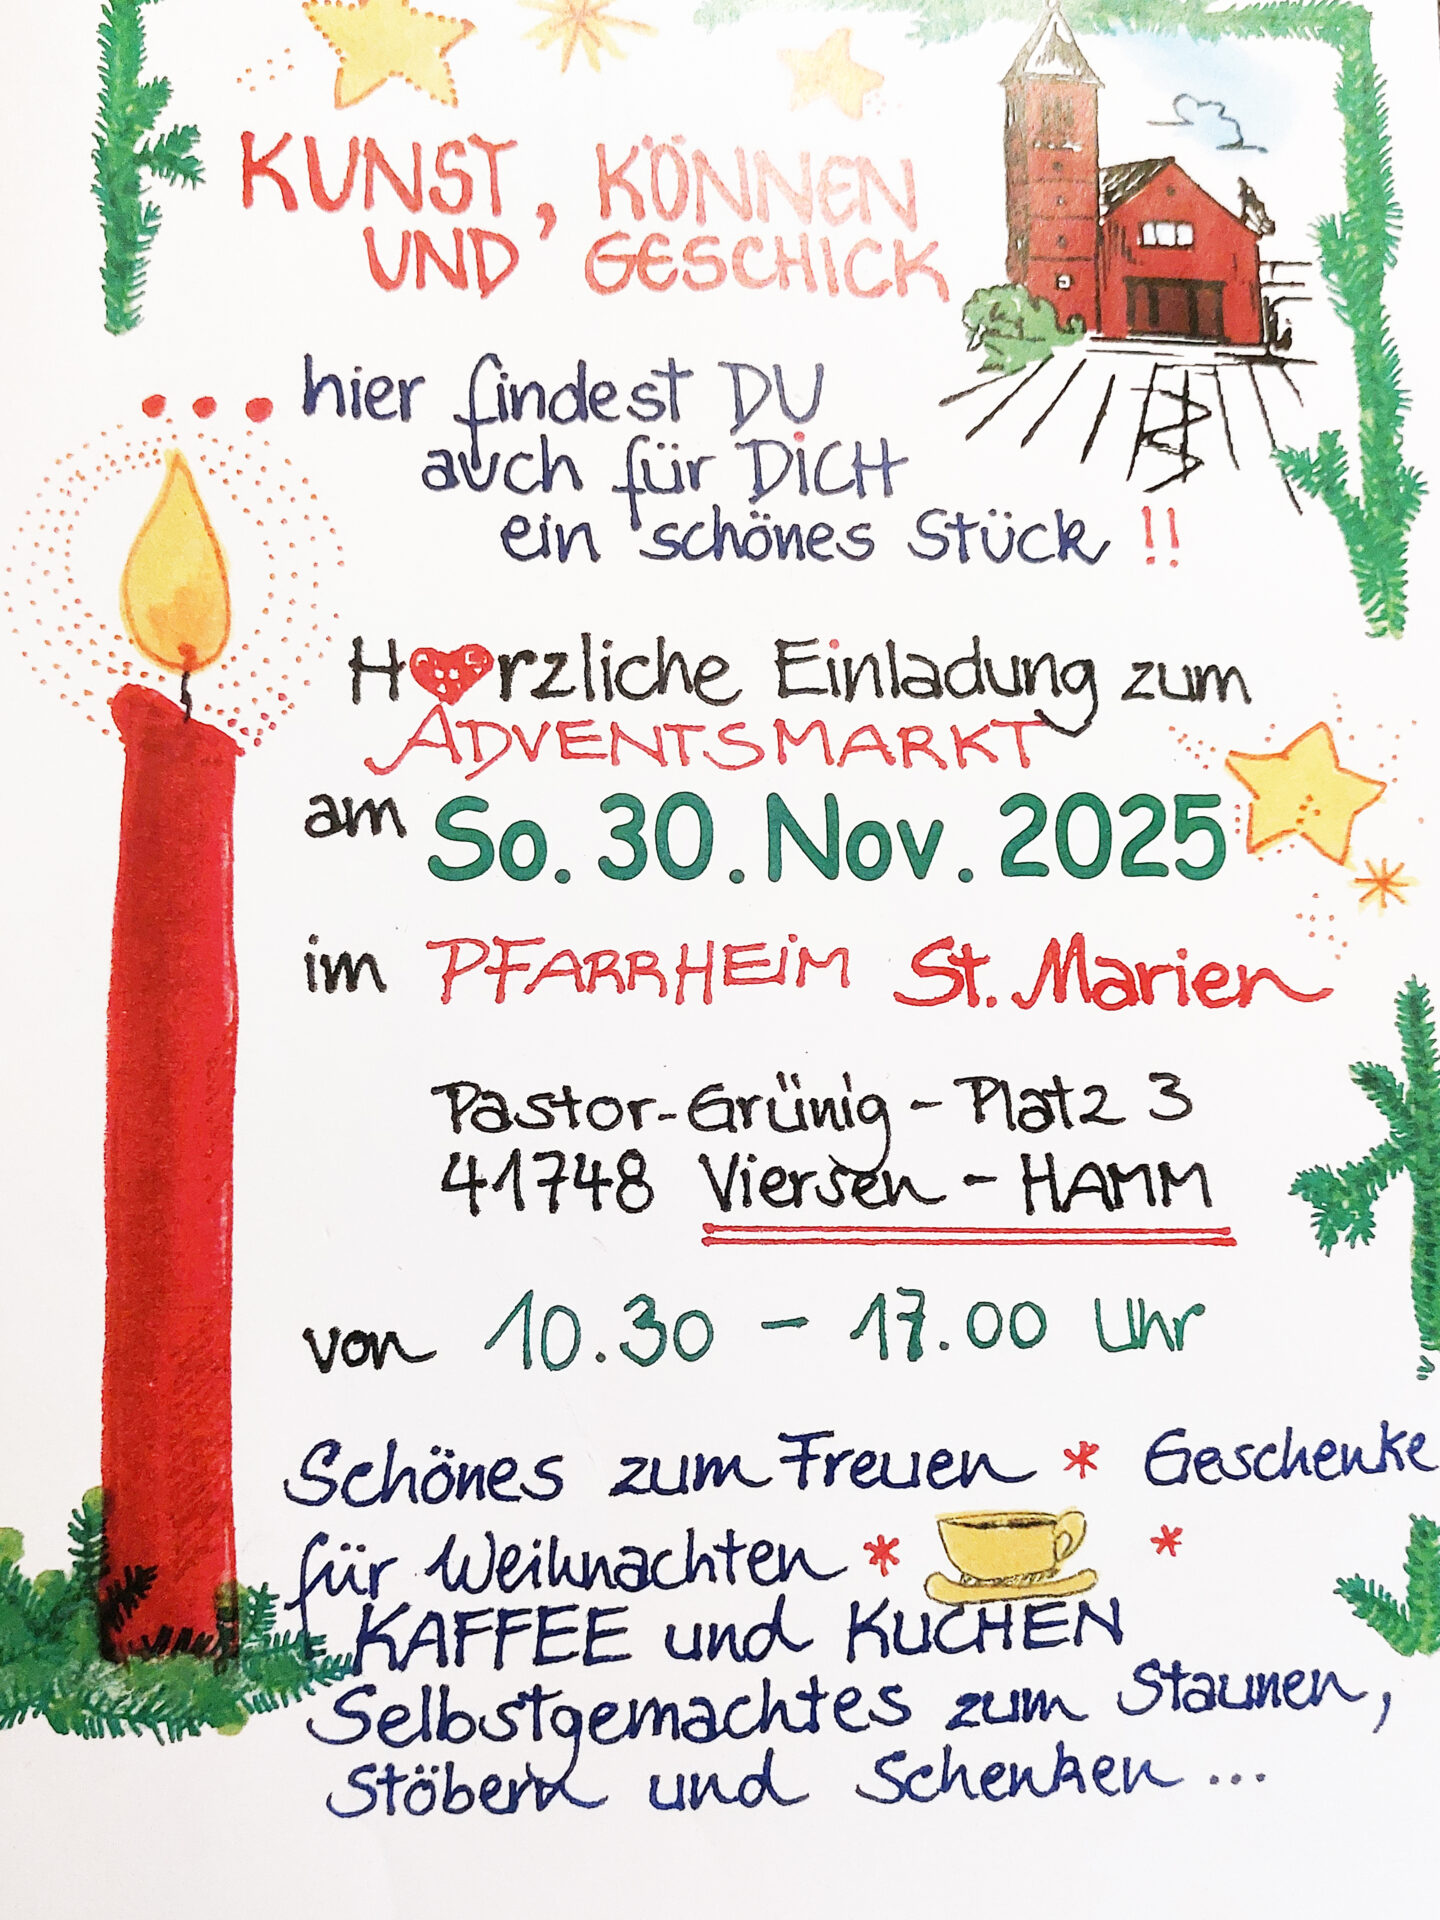 KUNST, KÖNNEN
UND GESCHICK
... hier findest DU
auch für DiCH
ein schönes Stück !!
H❤rzliche Einladung zum
ADVENTSMARKT
am So. 30. Nov. 2025
im PFARRHEiM St. Marien
Pastor-Grünig - Platz 3
41748 Viersen - HAMM
von 10.30 - 17.00 Uhr
Schönes zum Freuen * Geschenke
für Weihnachten * *
KAFFEE und KUCHEN
Selbstgemachtes zum Staunen,
Stöbern und Schenken ...